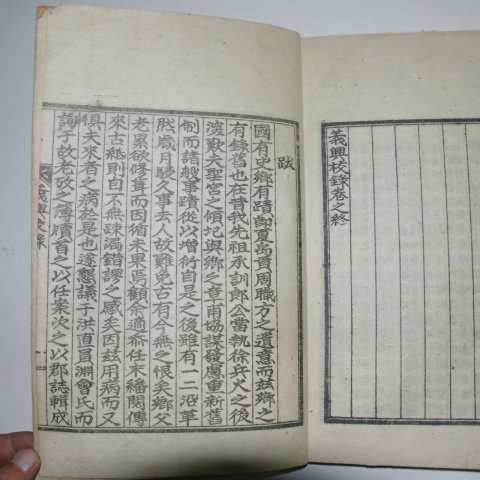 義興校錄卷之終
跋
國有史鄉有蹟卽夏禹貢周職方之遺意而玆鄉之
有錄舊也在昔我先祖承訓郎公當執徐兵火之後
慨歎夫聖宮之傾圮與鄉之章甫協謀發慮重新舊
制而諸般事蹟從以增衍自是之後雖有一二沿革
然歲月寢久事去人故難免古有今無之恨矣鄉父
老累欲修葺而因循未果焉顧余適忝任末繙閱傳
來古紙則自不無疎漏錯謬之感矣因玆用病而又
懼夫來者之病於是也遂懇議于洪直員淵會氏而
詢于故老攷之簿牘首之以任案次之以郡誌輯成
義興校錄